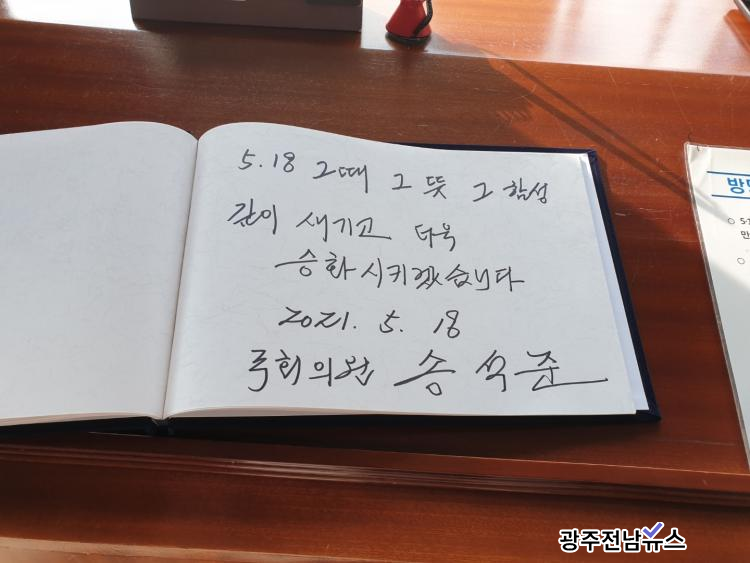 5.18 그때 그 뜻 그 함성
깊이 새기고 더욱
승화시키겠습니다
2021. 5. 18
국회의원 송석준
방
5·1
만
광주전남뉴스